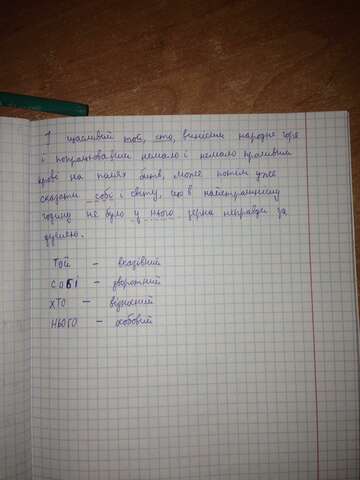 І щасливий той, хто, винісши народне горя
і потрактовавши немало і немало проливши
крові на полях битв, може потім уже
сказати собі і світу, що в найстрашнішу
годину не було у нього зерна неправди за
душею.
Той – вказівний
СОБІ – зворотний
ХТО – відносний
НЬОГО – особовий